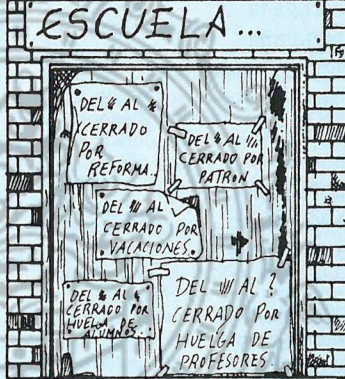 ESCUELA...
DEL AL
CERRADO
POR
REFORMA.
DEL AL
CERRADO POR
PATRON
DEL AL
CERRADO POR
VACACIONES.
DEL AL
CERRADO POR
HUELGA DE
ALUMNOS.
DEL AL ?
CERRADO POR
HUELGA DE
PROFESORES.